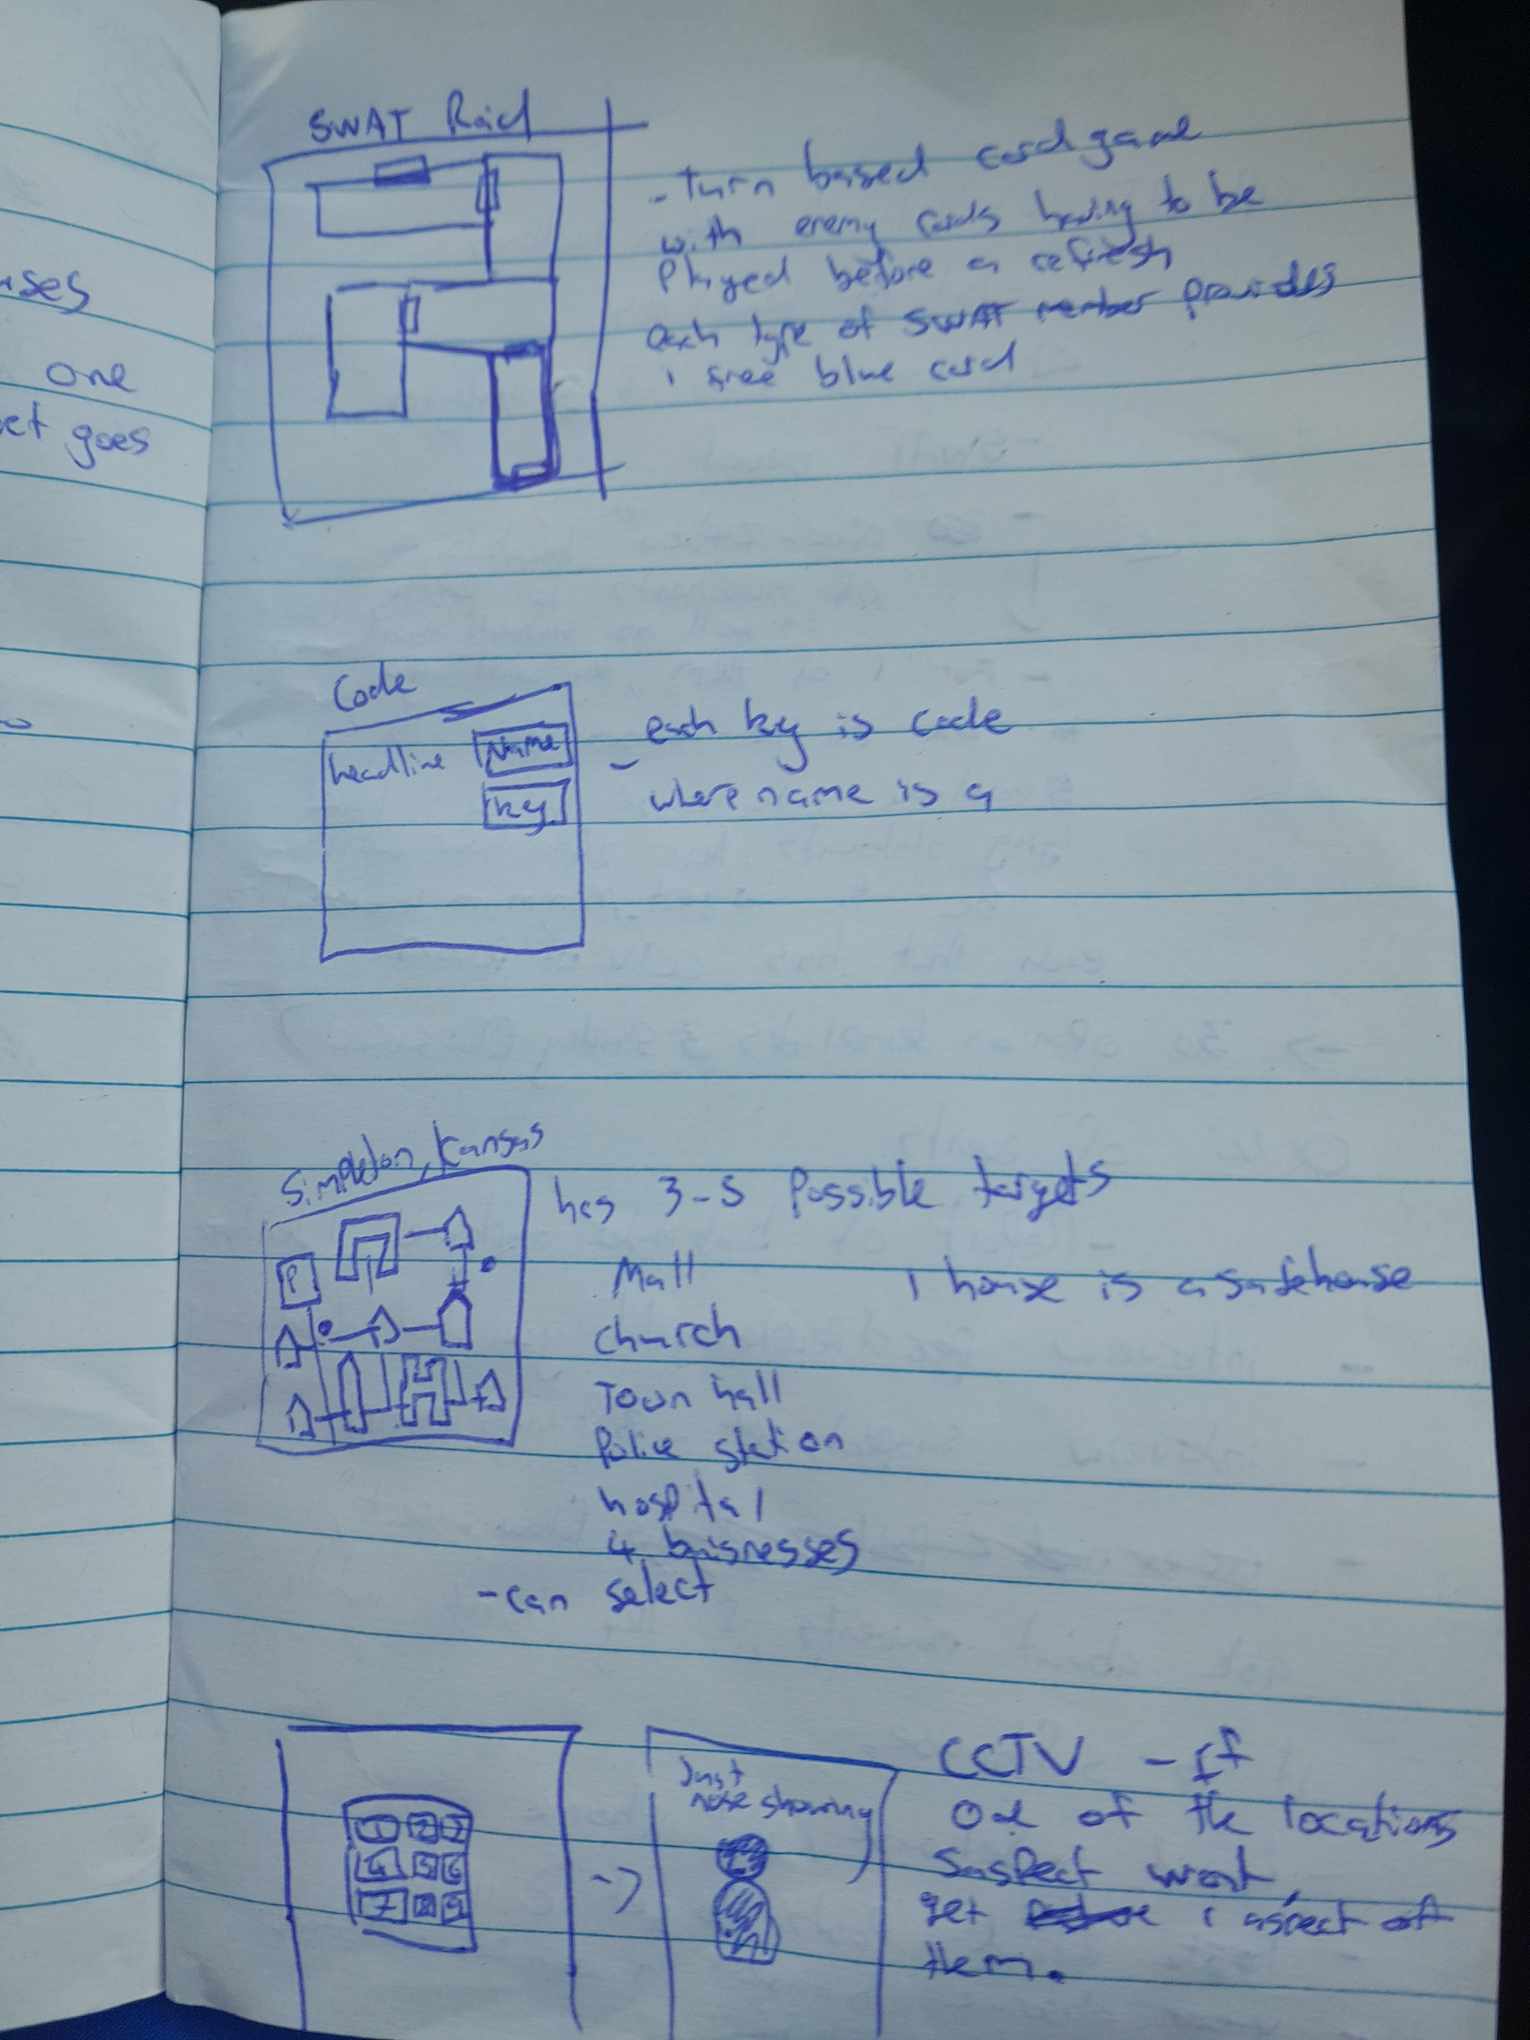 uses
one
et goes
SWAT Raid
- Turn based card game
with enemy cards having to be
Played before a refresh
each type of SWAT member provides
1 free blue card
Code
headline
Name
key
- each key is code
where name is a
Simpleton, Kansas
P
has 3-5 Possible targets
Mall
1 house is a safehouse
Church
Town hall
Police station
hospital
4 buisnesses
- can select
1 2 3
4 5 6
7 8 9
->
Just
nose showing
CCTV - if
One of the locations
Suspect went,
get 1 aspect of
them.